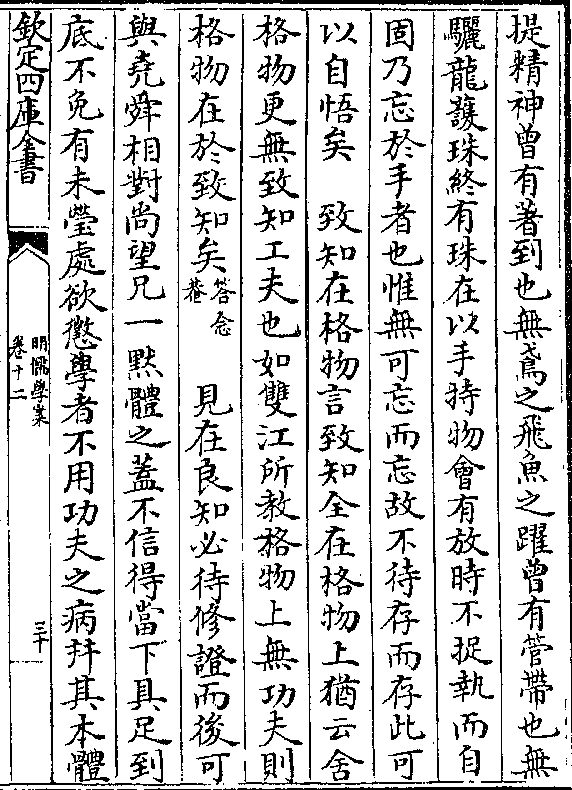 提精神曾有著到也無鳶之飛魚之躍曾有管帶也無
驪龍護珠終有珠在以手持物會有放時不捉執而自
固乃忘於手者也惟無可忘而忘故不待存而存此可
以自悟矣　致知在格物言致知全在格物上猶云舍
格物更無致知工夫也如雙江所教格物上無功夫則
格物在於致知矣答念菴　見在良知必待修證而後可
與堯舜相對尚望兄一黙體之蓋不信得當下具足到
底不免有未瑩處欲懲學者不用功夫之病并其本體
欽定四庫全書
明儒學案
卷十二
三十